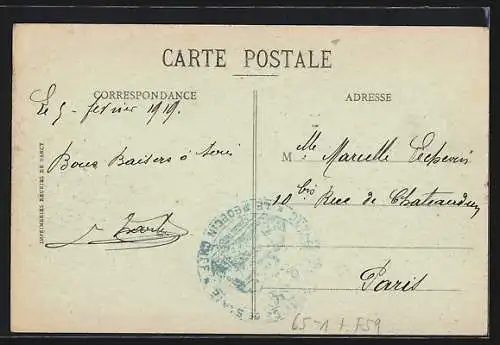 CARTE POSTALE
CORRESPONDANCE
ADRESSE
Le 5 - février 1919.
Bons Baisers à tous
IMPRIMERIES RÉUNIES DE NANCY
Mlle Marcelle
10 bis Rue de Chateaudun
Paris
LE MÉDECIN CHEF
65-1 t. F59